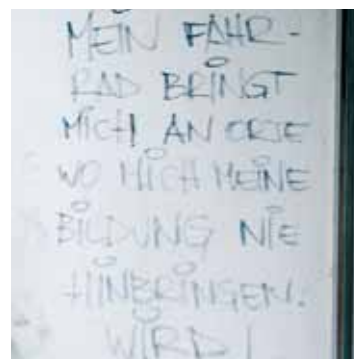 MEIN FAHR-
RAD BRINGT
MICH AN ORTE
WO MICH MEINE
BILDUNG NIE
HINBRINGEN.
WIRD!